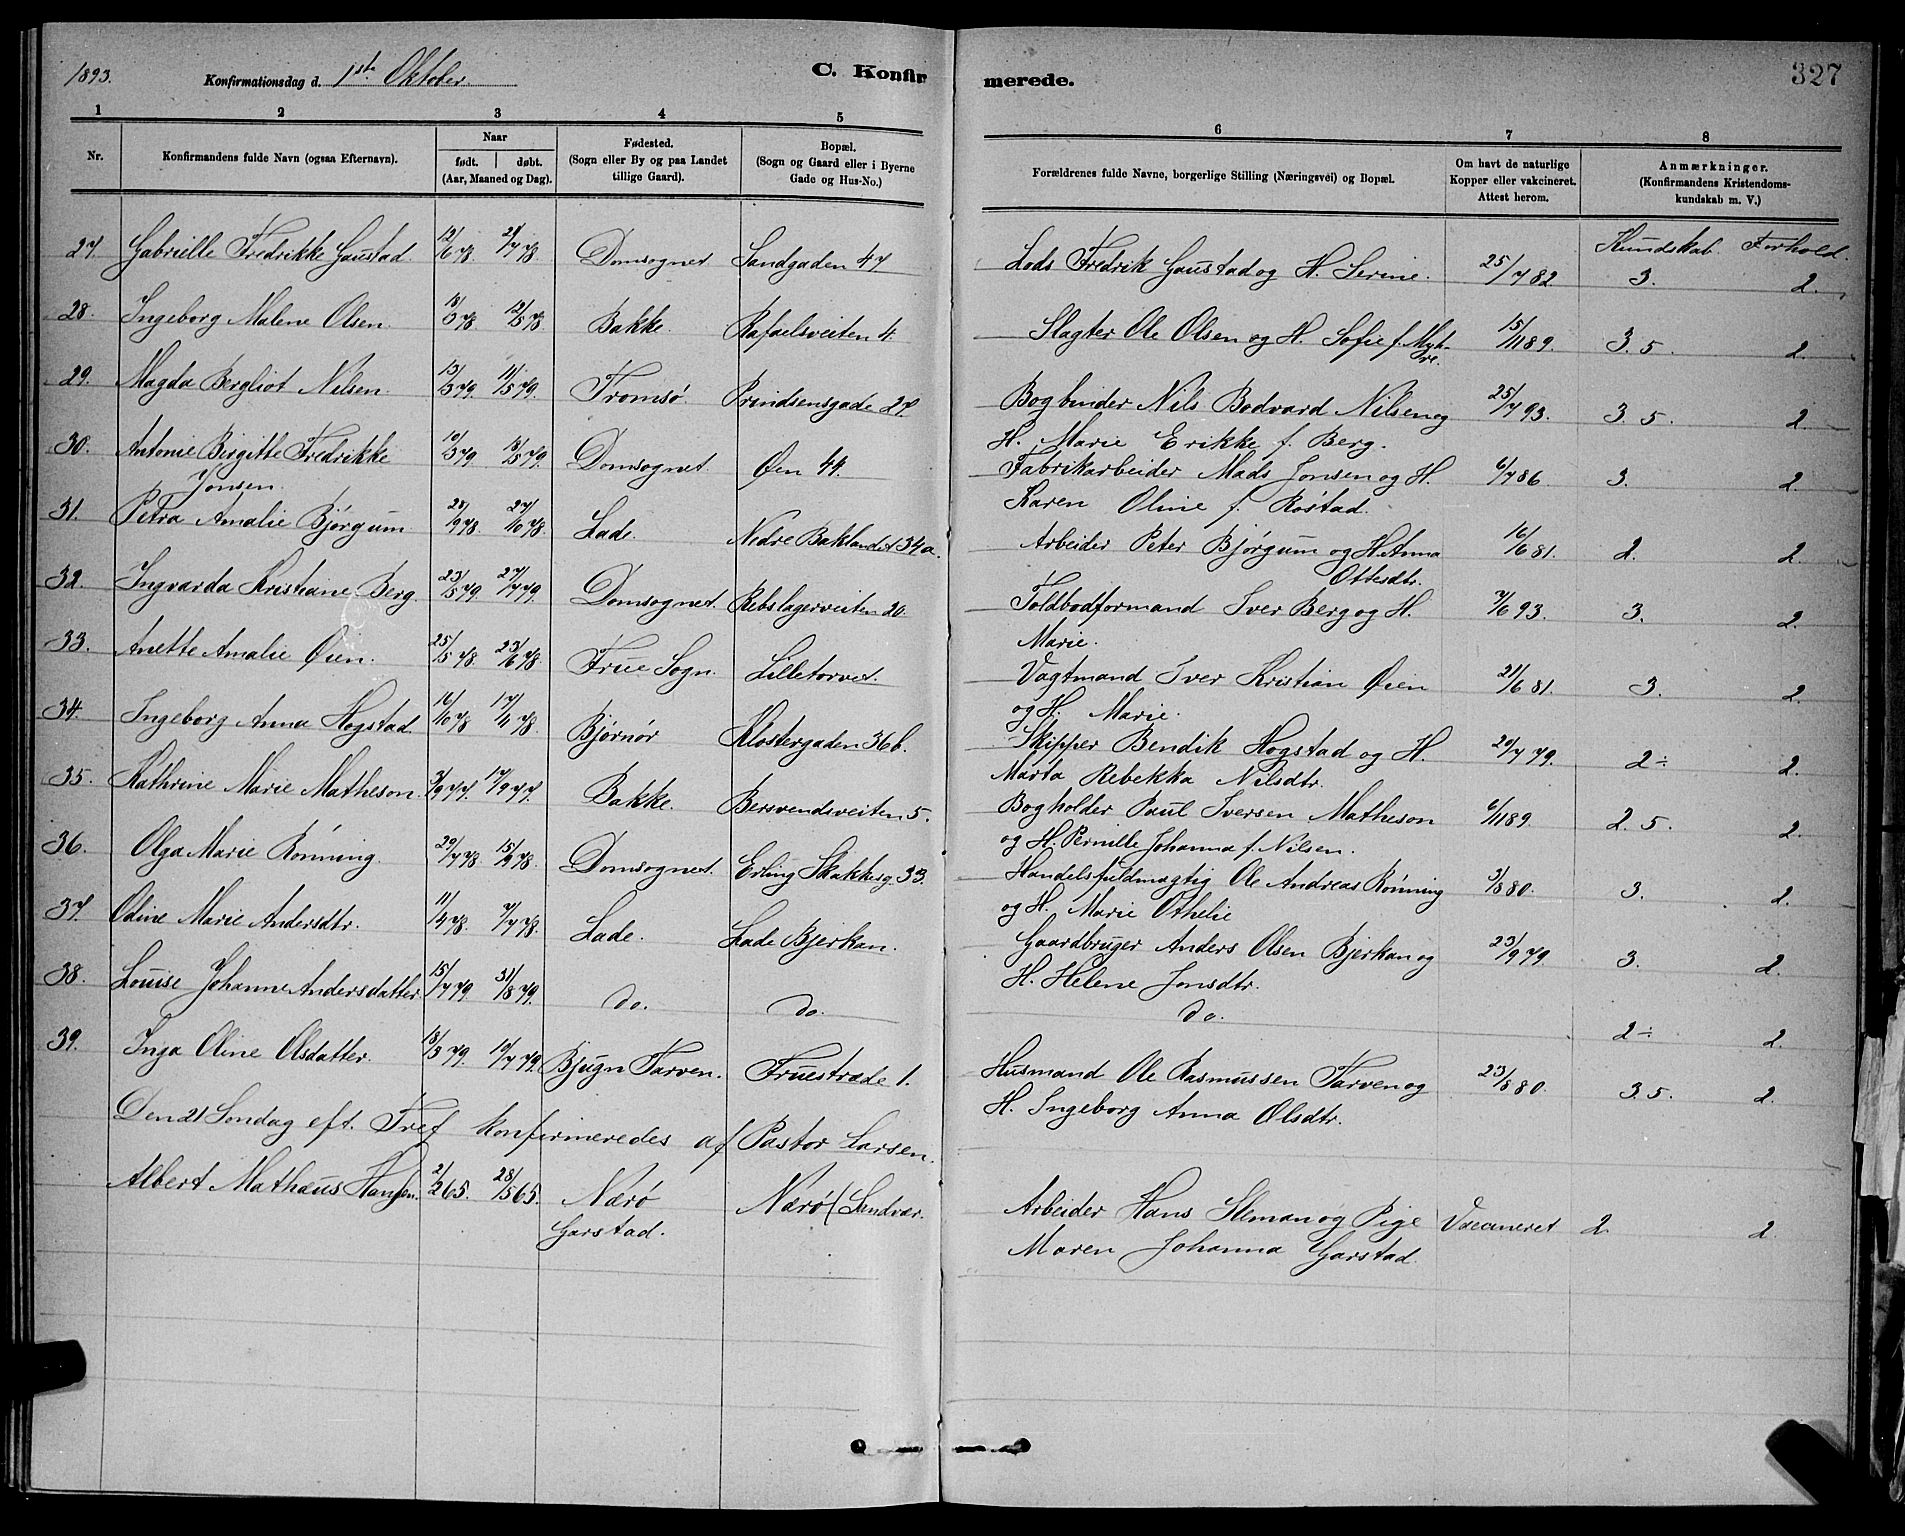 1893. Konfirmationsdag d. 1ste Oktober. C. Konfirmerede. 327
1 2 3 4 5 6 7 8
Nr. Konfirmandens fulde Navn (ogsaa Efternavn). Naar født. døbt. (Aar, Maaned og Dag). Fødested. (Sogn eller By og paa Landet tillige Gaard). Bopæl. (Sogn og Gaard eller i Byerne Gade og Hus-No.) Forældrenes fulde Navne, borgerlige Stilling (Næringsvei) og Bopæl. Om havt de naturlige Kopper eller vakcineret. Attest herom. Anmærkninger. (Konfirmandens Kristendomskundskab m. V.)
Kundskab Forhold.
27. Gabrielle Fredrikke Gaustad 12/6 78 21/7 78 Domsognet Sandgaden 47 Lods Fredrik Gaustad og H. Serine. 25/7 82 3. 2.
28. Ingeborg Malene Olsen. 18/3 78. 12/5 78 Bakke. Rafaelsveiten 4. Slagter Ole Olsen og H. Sofie f. Myhre. 15/11 89. 3.5. 2.
29. Magda Bergliot Nilsen. 13/3 79. 11/5 79. Tromsø. Prindsensgade 27. Bogbinder Nils Bodvard Nilsen og 25/7 93. 3.5. 2.
H. Marie Erikke f. Berg.
30. Antonie Birgitte Fredrikke 10/3 79 18/5 79. Domsognet. Øen 44. Fabrikarbeider Mads Jonsen og H. 6/7 86 3. 2.
Jonsen. Karen Oline f. Röstad.
31. Petra Amalie Bjørgum 28/9 78. 27/10 78 Lade. Nedre Baklandet 34a. Arbeider Peter Bjørgum og H. Anna 16/6 81. 2. 2.
Ottesdtr.
32. Ingvarda Kristiane Berg. 23/5 79. 27/7 79. Domsognet. Rebslagerveiten 20. Toldbodformand Iver Berg og H. 7/6 93. 3. 2.
Marie.
33. Anette Amalie Øien. 25/5 78. 23/6 78. Frue Sogn. Lilletorvet. Vagtmand Iver Kristian Øien 21/6 81. 3. 2.
og H. Marie.
34. Ingeborg Anna Hogstad. 16/10 78 17/11 78. Bjørnør Klostergaden 36b. Skipper Bendik Hogstad og H. 29/7 79. 2÷ 2.
Marta Rebekka Nilsdtr.
35. Kathrine Marie Matheson. 3/9 77. 17/9 77. Bakke. Bersvendsveiten 5. Bogholder Paul Iversen Matheson 6/11 89. 2.5. 2.
og H. Pernille Johanna f. Nilsen.
36. Olga Marie Rönning. 29/7 78 15/9 78. Domsognet. Erling Skakkesg. 33. Handelsfuldmægtig Ole Andreas Rönning 3/8 80. 3. 2.
og H. Marie Othelie
37. Odine Marie Andersdtr. 11/4 78. 7/7 78. Lade. Lade Bjerkan. Gaardbruger Anders Olsen Bjerkan og 23/9 79. 3. 2.
H. Helene Jonsdtr.
38. Louise Johanne Andersdatter. 15/7 79. 31/8 79. do. do. do. 2÷ 2.
39. Inga Oline Olsdatter. 18/3 79. 19/7 79. Bjugn Tarven. Fruestræde 1. Husmand Ole Rasmussen Tarven og 23/8 80. 3.5. 2.
H. Ingeborg Anna Olsdtr.
Den 21 Söndag eft. Tref konfirmeredes af Pastor Larsen.
Albert Mathæus Hansen. 2/2 65. 28/5 65. Nærö Nærö (Sandvær. Arbeider Hans og Pige Vaccineret 2. 2.
Garstad. Maren Johanna Garstad.